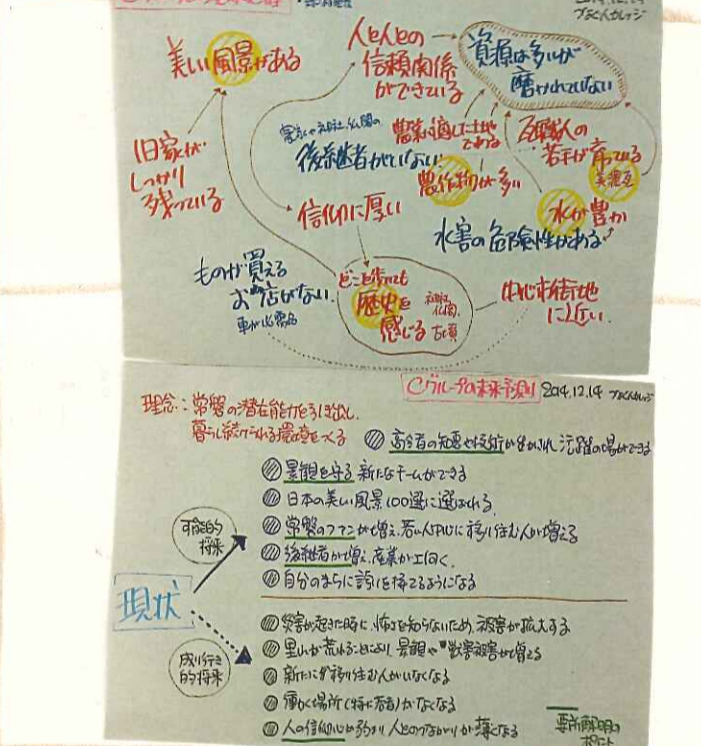 2014.12.14
美しい風景がある
人と人との
信頼関係
ができている
資源は多いが
磨かれていない
旧家が
しっかり
残っている
後継者がいない
農業に適した土地
である
農作物が多い
瓦職人の
若手が育っている
信仰に厚い
水が豊か
水害の危険性がある
ものが買える
お店がない
車が必需品
どこを歩いても
歴史を
感じる
神社
仏閣
古墳
中心市街地
に近い
Cグループの未来予測 2014.12.14
理念:常磐の潜在能力を引き出し、
暮らし続けられる環境をつくる
高齢者の知恵や技術が生かされ活躍の場ができる
景観を守る新たなチームができる
日本の美しい風景100選に選ばれる
常磐のファンが増え、若い人中心に移り住む人が増える
後継者が増え、産業が上向く
自分のまちに誇りを持てるようになる
可能的
将来
現状
成り行き
的将来
災害が起きた時に、怖さを知らないため、被害が拡大する
里山が荒れることにより、景観や獣害被害が増える
新たに移り住む人がいなくなる
働く場所(特に若者)がなくなる
人の信仰心が弱まり人とのつながりが薄くなる
要所解明の
ポイント